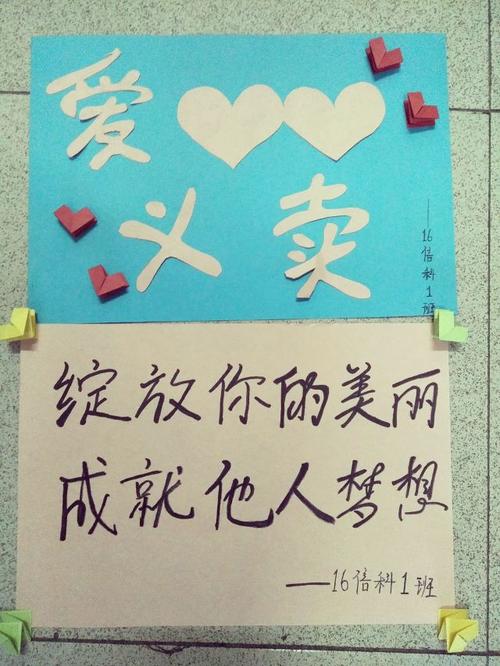 爱
义卖
——16倍科1班
绽放你的美丽
成就他人梦想
——16倍科1班